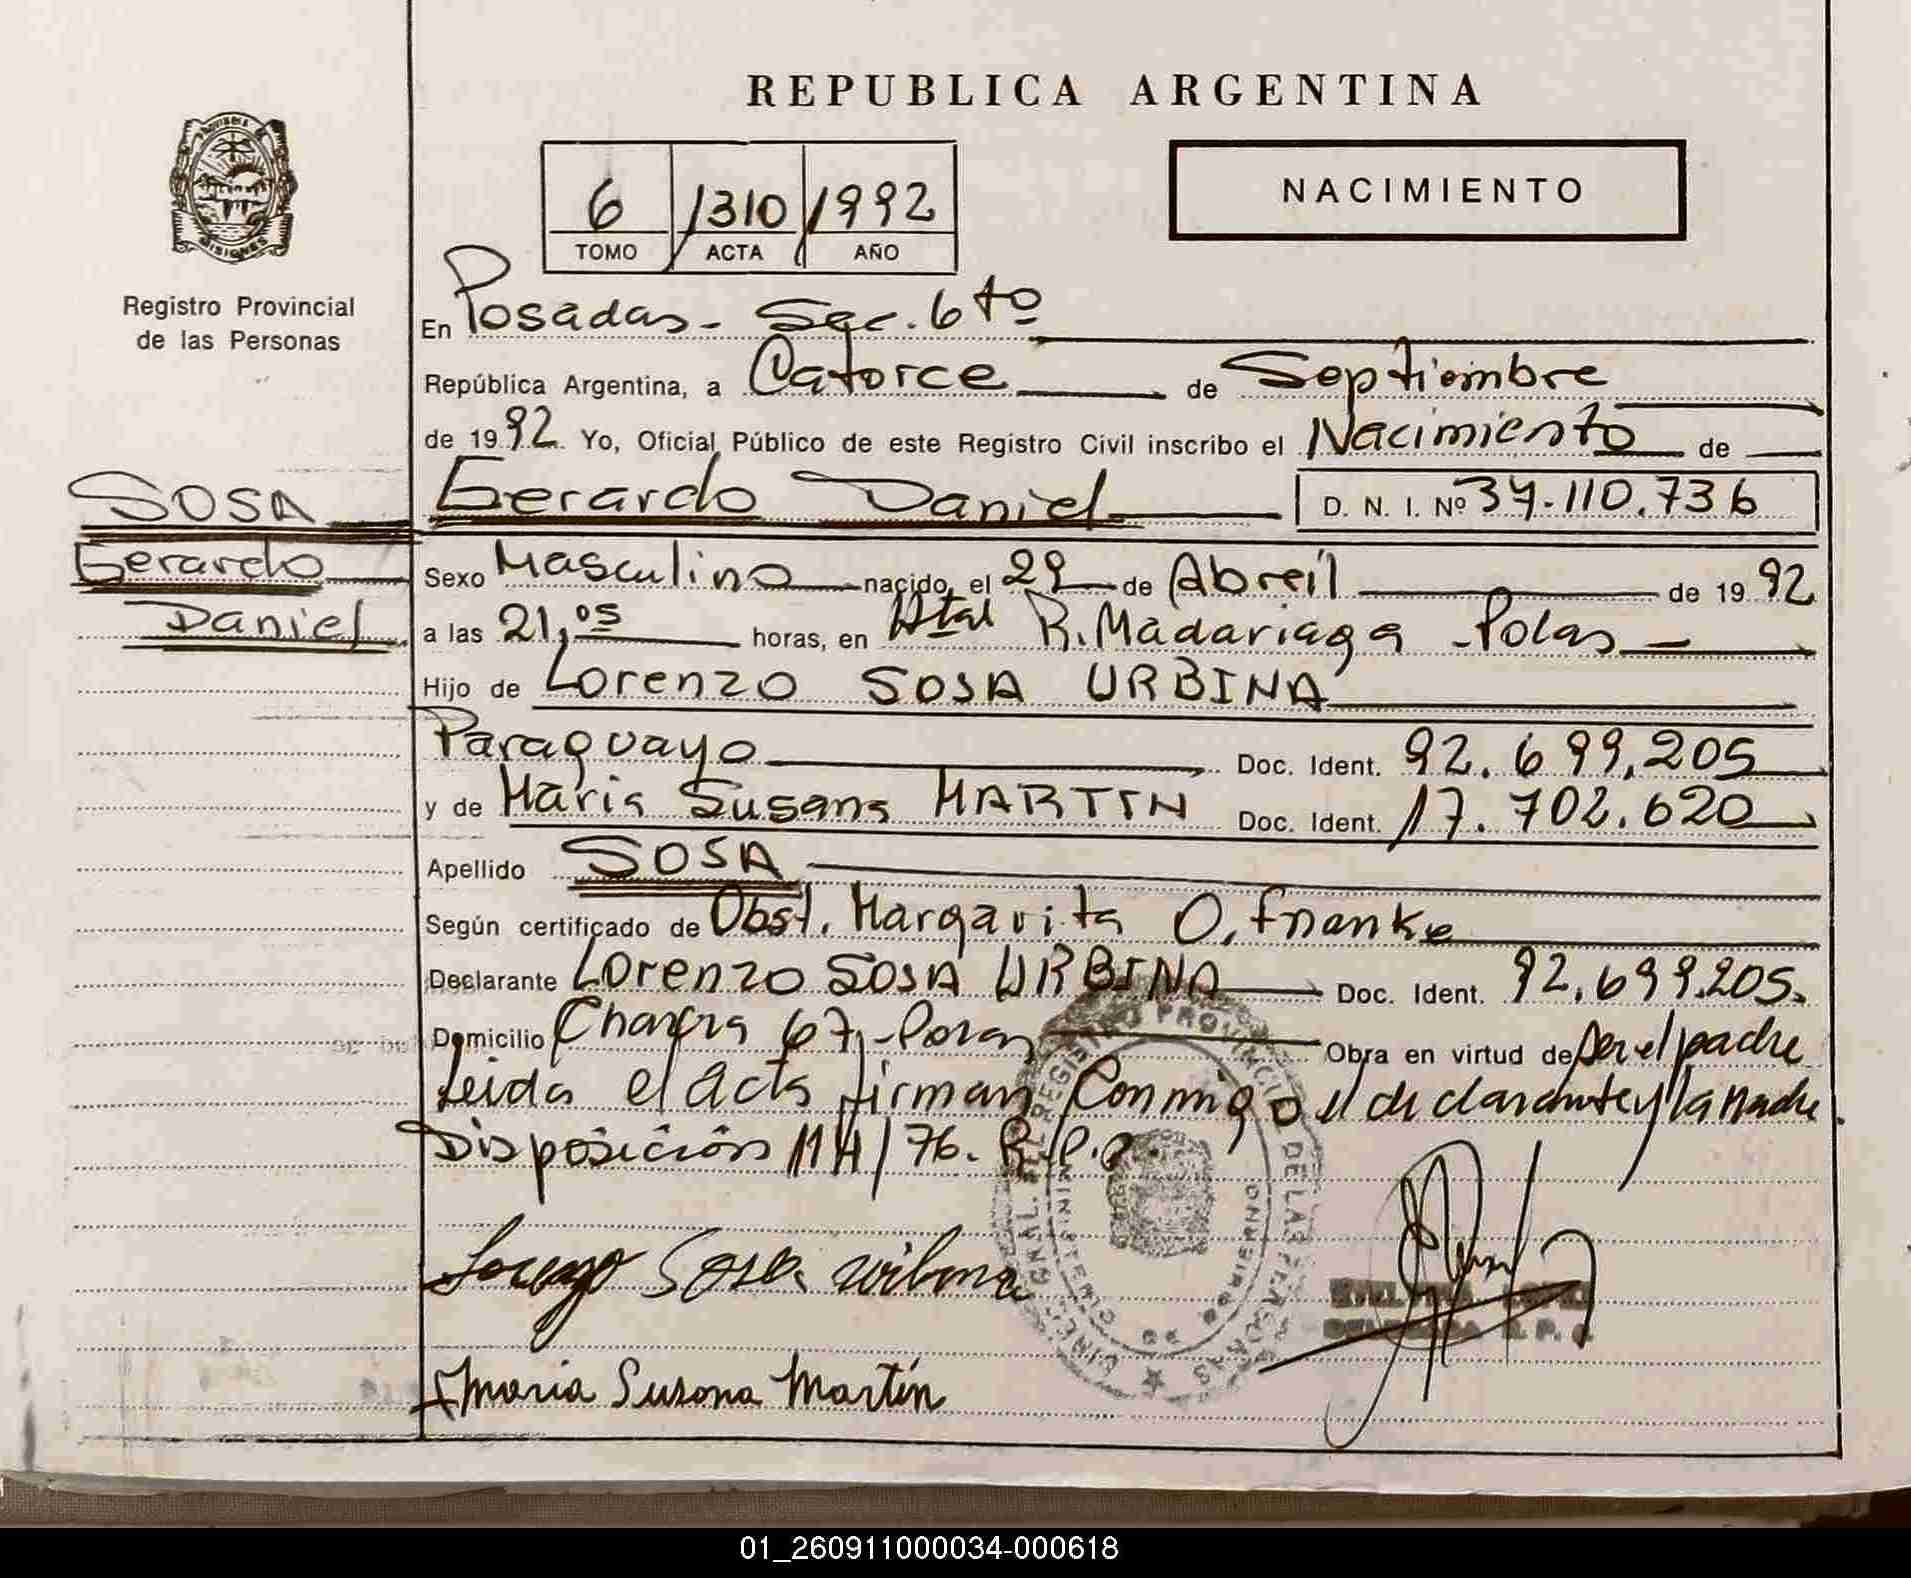 REPUBLICA ARGENTINA
NACIMIENTO
6 1310 1992
TOMO ACTA AÑO
PROVINCIA DE
MISIONES
Registro Provincial
de las Personas
En Posadas - Sec. 6to
República Argentina, a Catorce de Septiembre
de 1992 Yo, Oficial Público de este Registro Civil inscribo el Nacimiento de
SOSA
Gerardo
Daniel
Gerardo Daniel D. N. I. Nº 37.110.736
Sexo Masculino nacido, el 29 de Abreil de 1992
a las 21,05 horas, en Htal R. Madariaga - Pdas -
Hijo de Lorenzo SOSA URBINA
Paraguayo Doc. Ident. 92.699.205
y de Maria Susana MARTIN Doc. Ident. 17.702.620
Apellido SOSA
Según certificado de Obst. Margarita O. Franke
Declarante Lorenzo SOSA URBINA Doc. Ident. 92.699.205.
Domicilio Chacra 67 - Obra en virtud de ser el padre
Leida el acta firman conmigo el declarante y la madre.
Disposición 114/76. R.P.P.
REGISTRO PROVINCIAL DE LAS PERSONAS
MINISTERIO DE GOBIERNO
Lorenzo Sosa Urbina
DELEGADA R. P. P.
Maria Susana Martin
01_260911000034-000618